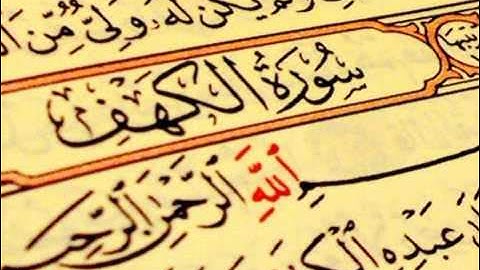 يَكُن لَّهُۥ وَلِىٌّ مِّنَ
سُورَةُ الكَهْفِ
ٱللَّهِ ٱلرَّحْمَٰنِ ٱلرَّحِي
عَبْدِهِ